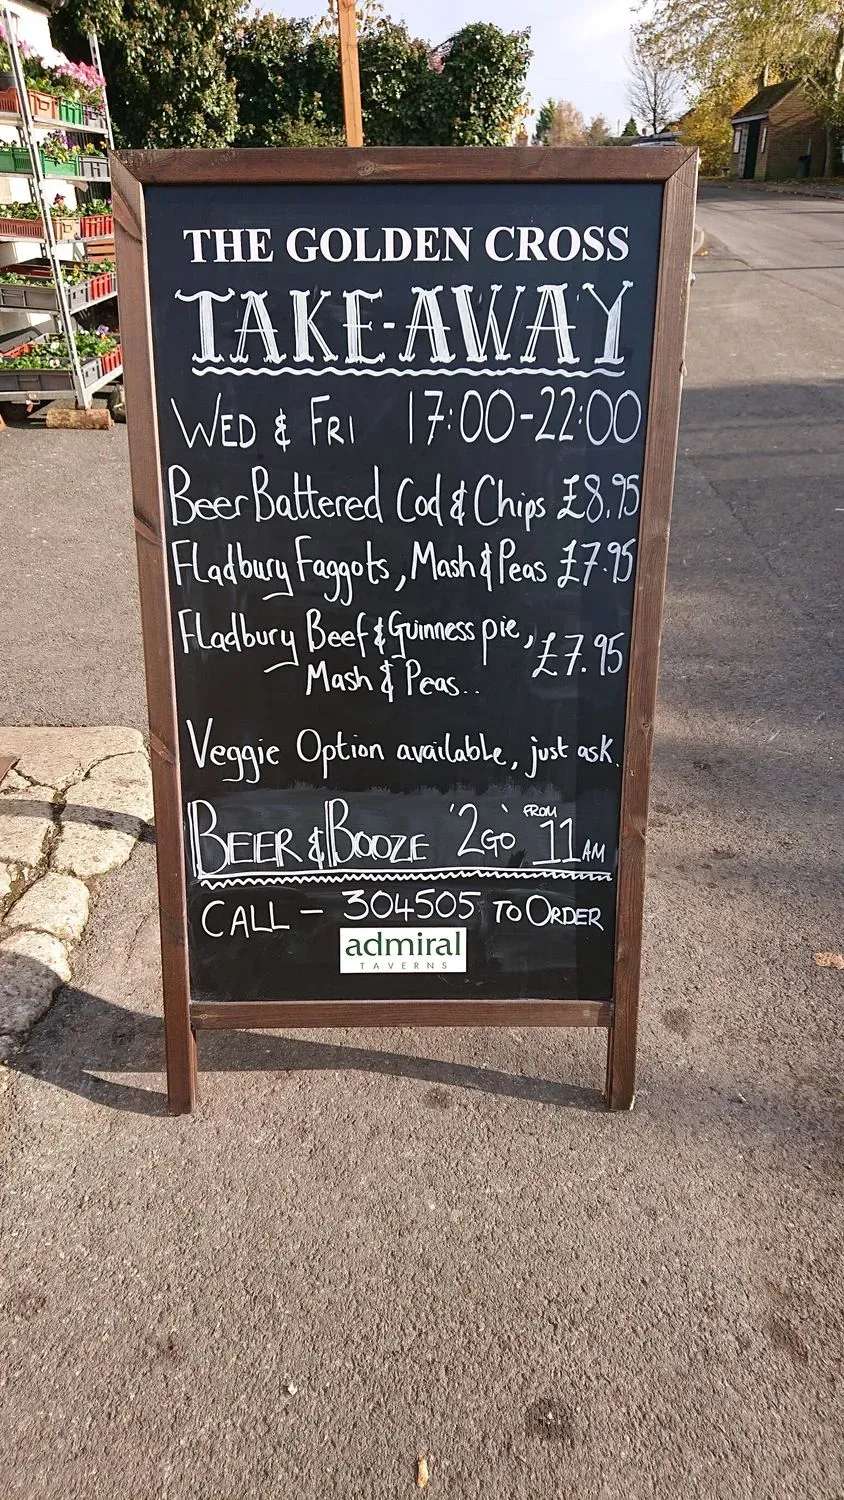 THE GOLDEN CROSS
TAKE-AWAY
WED & FRI 17:00-22:00
Beer Battered Cod & Chips £8.95
Fladbury Faggots, Mash & Peas £7.95
Fladbury Beef & Guinness pie, £7.95
Mash & Peas..
Veggie Option available, just ask.
BEER & BOOZE '2GO' FROM 11AM
CALL - 304505 TO ORDER
admiral
TAVERNS